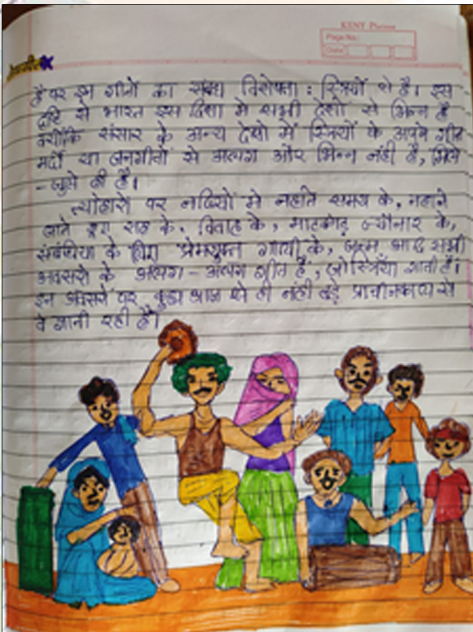 KENY Piction
Page No.:
Date
लोकगीत
है पर इन गीतों का संबंध विशेषतः स्त्रियों से है। इस
दृष्टि से भारत इस दिशा में सभी देशों से भिन्न है
क्योंकि संसार के अन्य देशों में स्त्रियों के अपने गीत
मर्दों या जनगीतों से अलग और भिन्न नहीं है, मिले
-जुले ही है।
त्योहारों पर नदियों में नहाते समय के, नहाने
जाते हुए राह के, विवाह के, मटकोड़ ज्यौनार के,
संबंधियों के लिए प्रेमयुक्त गाली के, जन्म आदि सभी
अवसरों के अलग-अलग गीत हैं, जो स्त्रियाँ गाती हैं।
इन अवसरों पर कुछ आज से ही नहीं बड़े प्राचीनकाल से
वे गाती रही हैं।